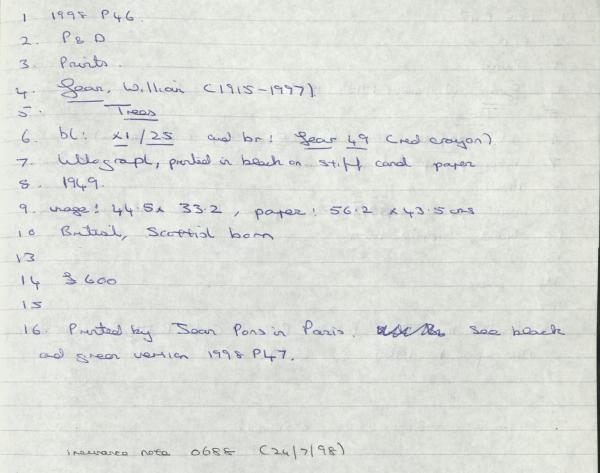 1 1998 P46.
2. P & D
3. Prints.
4. Gear, William (1915-1997)
5. Trees
6. bl: x1/25 and br: Gear 49 (red crayon)
7. Lithograph, printed in black on stiff card paper
8. 1949.
9. image: 44.5 x 33.2, paper: 56.2 x 43.5 cms
10 British, Scottish born
13
14 £600
15
16. Printed by Jean Pons in Paris. See black
and green version 1998 P47.
insurance note 0688 (24/7/98)